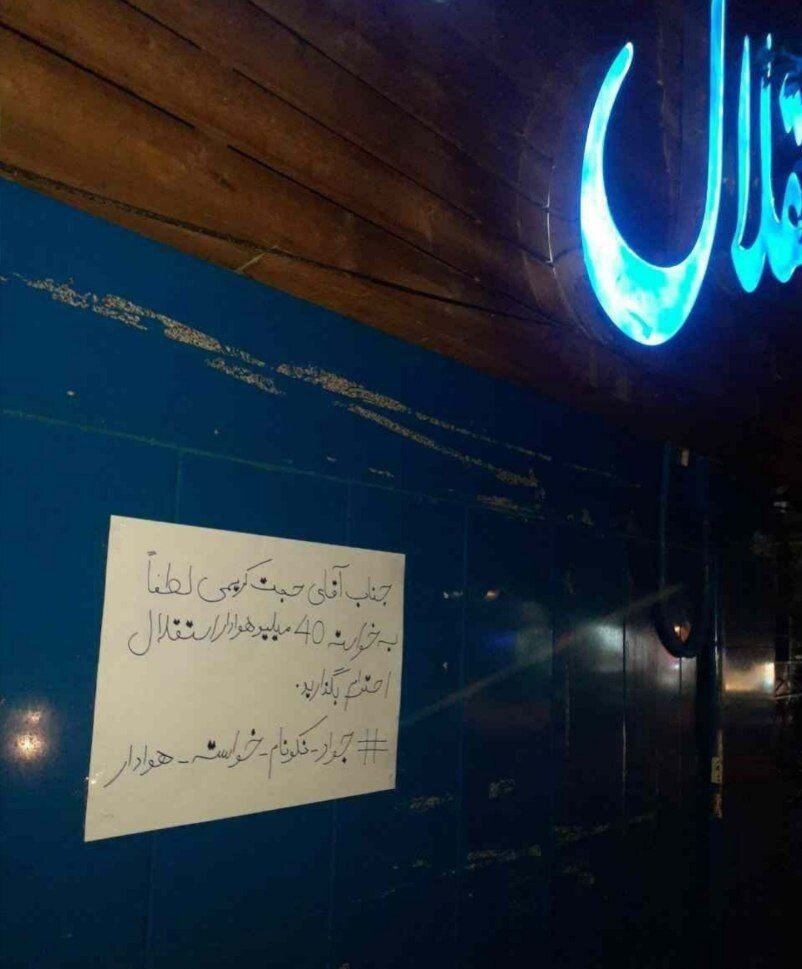 قلال
جناب آقای حجت کریمی لطفاً
به خواسته 40 میلیو هوادار استقلال
احترام بگذارید.
# جواد - نکونام - خواسته - هوادار